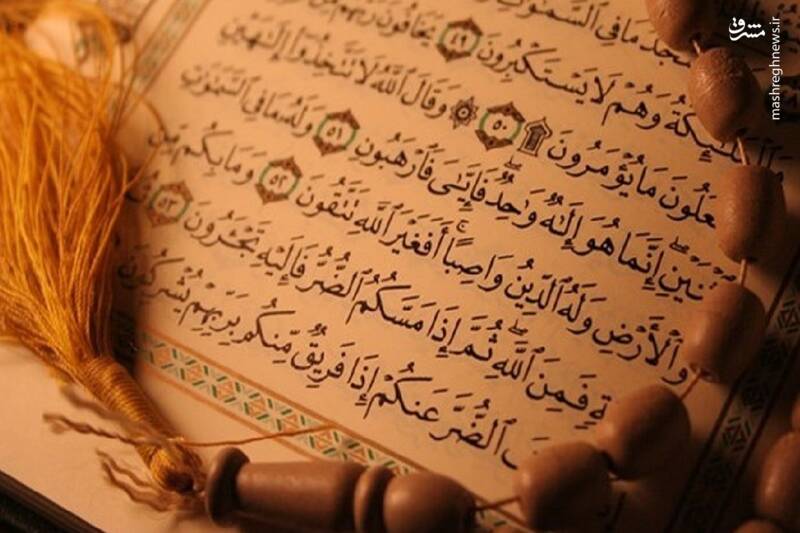 مَا فِى السَّمَٰوَٰتِ
وَالْمَلَٰٓئِكَةُ وَهُمْ لَا يَسْتَكْبِرُونَ ٤٩ يَخَافُونَ رَبَّهُم مِّن
مَا يُؤْمَرُونَ ۩ ٥٠ ۞ وَقَالَ اللَّهُ لَا تَتَّخِذُوٓا۟ إِلَٰهَيْنِ
إِنَّمَا هُوَ إِلَٰهٌ وَٰحِدٌ فَإِيَّٰىَ فَارْهَبُونِ ٥١ وَلَهُۥ مَا فِى السَّمَٰوَٰتِ
وَالْأَرْضِ وَلَهُ الدِّينُ وَاصِبًا أَفَغَيْرَ اللَّهِ تَتَّقُونَ ٥٢ وَمَا بِكُم مِّن
فَمِنَ اللَّهِ ثُمَّ إِذَا مَسَّكُمُ الضُّرُّ فَإِلَيْهِ تَجْـَٔرُونَ ٥٣
الضُّرَّ عَنكُمْ إِذَا فَرِيقٌ مِّنكُم بِرَبِّهِمْ يُشْرِكُونَ
مشرق
mashreghnews.ir